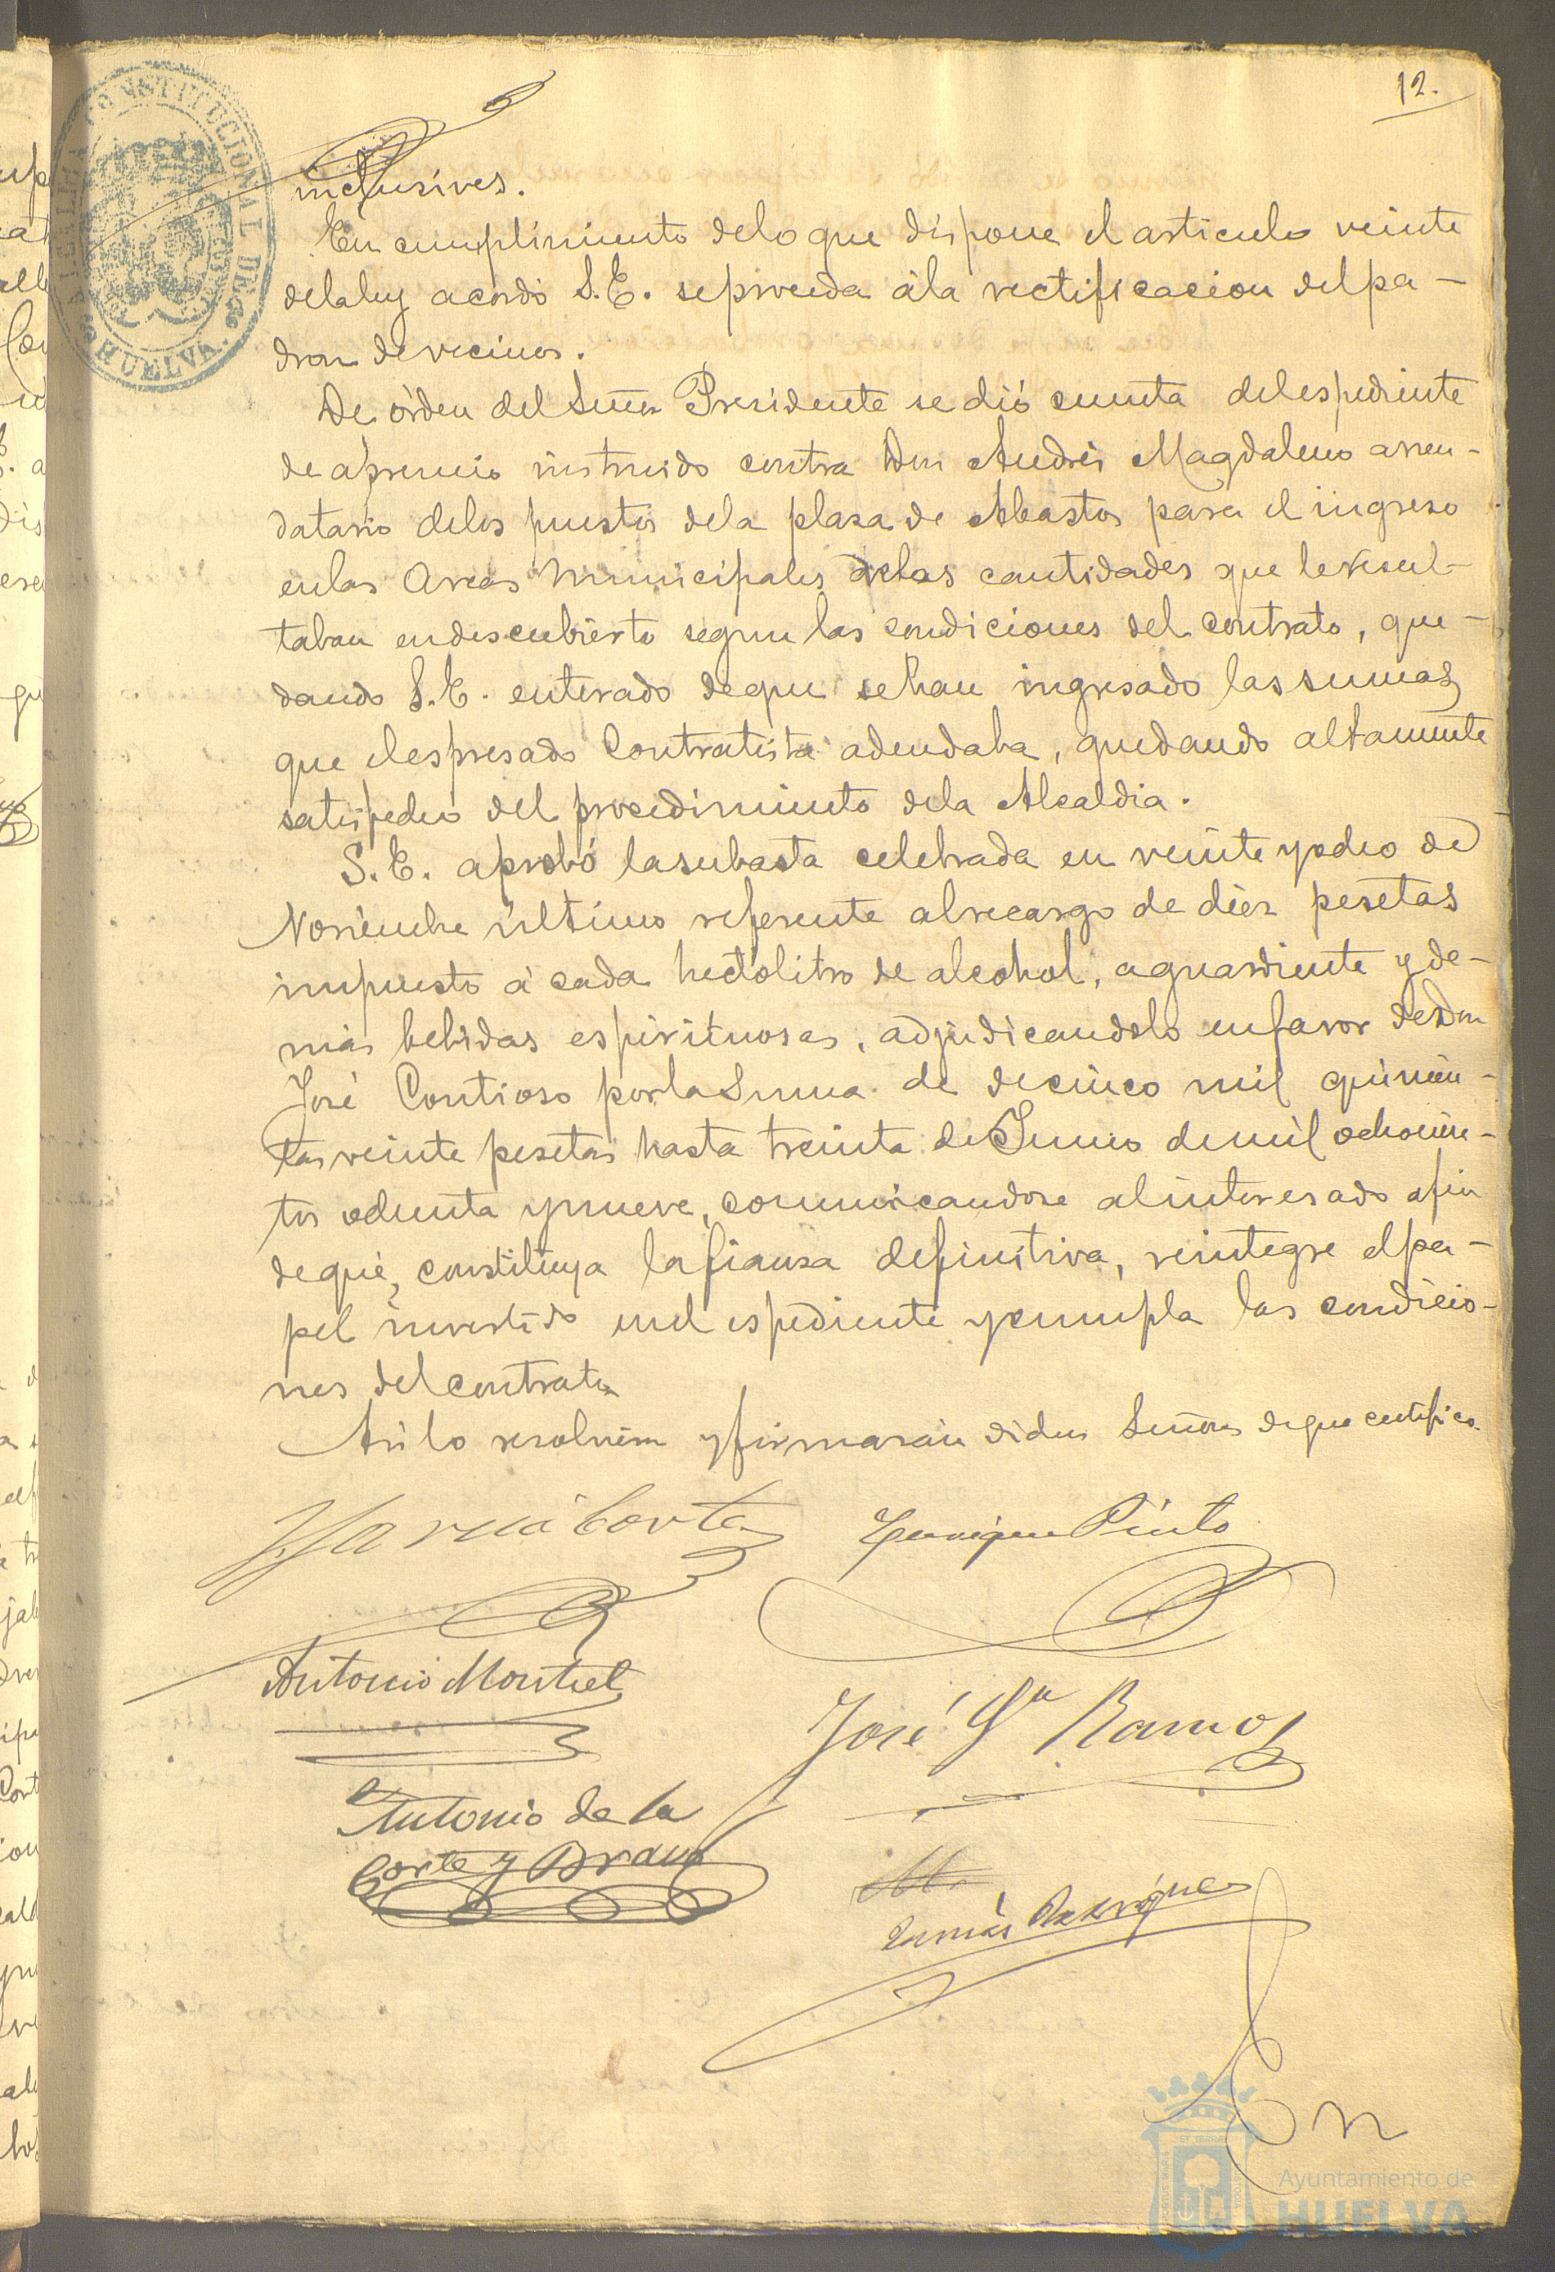 12.
ALCALDIA CONSTITUCIONAL DE HUELVA.
inclusives.
En cumplimiento delo que dispone el articulo veinte
dela ley acordó S.E. se proceda á la rectificacion del pa-
dron de vecinos.
De órden del Señor Presidente se dió cuenta del espediente
de apremio instruido contra Don Andrés Magdaleno arren-
datario delos puestos dela plaza de Abastos para el ingreso
en las Arcas Municipales de las cantidades que le resul-
taban en descubierto segun las condiciones del contrato, que-
dando S.E. enterado de que se han ingresado las sumas
que el espresado Contratista adeudaba, quedando altamente
satisfecho del procedimiento dela Alcaldia.
S.E. aprobó la subasta celebrada en veinte y ocho de
Noviembre último referente al recargo de diez pesetas
impuesto á cada hectolitro de alcohol, aguardiente y de-
más bebidas espirituosas, adjudicandolo en favor de Don
José Contioso por la Suma de cinco mil quinien-
tas veinte pesetas hasta treinta de Junio de mil ochocien-
tos ochenta y nueve, comunicandose al interesado a fin
de que, constituya la fianza definitiva, reintegre el pa-
pel invertido en el espediente y cumpla las condicio-
nes del contrato
Asi lo resolvieron y firmarán dichos Señores de que certifico.
García Cortes
Enrique Pinto
Antonio Montiel
José Gª Ramos
Antonio de la
Corte y Bravo
M.
Tomás Rodriguez
En
Ayuntamiento de
HUELVA